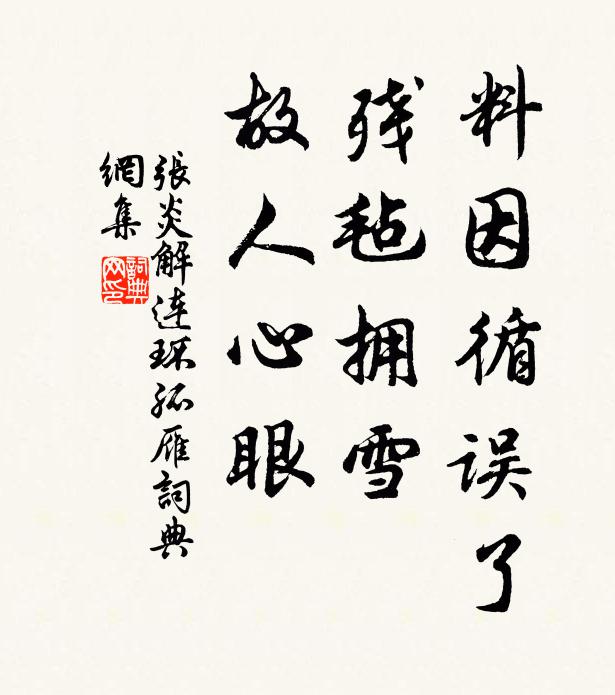 料因循误了
残毡拥雪
故人心眼
張炎解连环孤雁詞典
網集
詞典網印